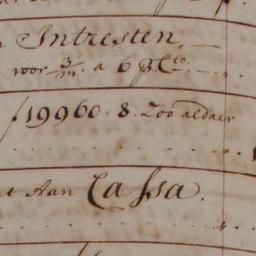 Intresten,
voor 3/m. a 6 p. Cto.
ƒ 19960. 8. Zoo aldaer
Aan Cassa.